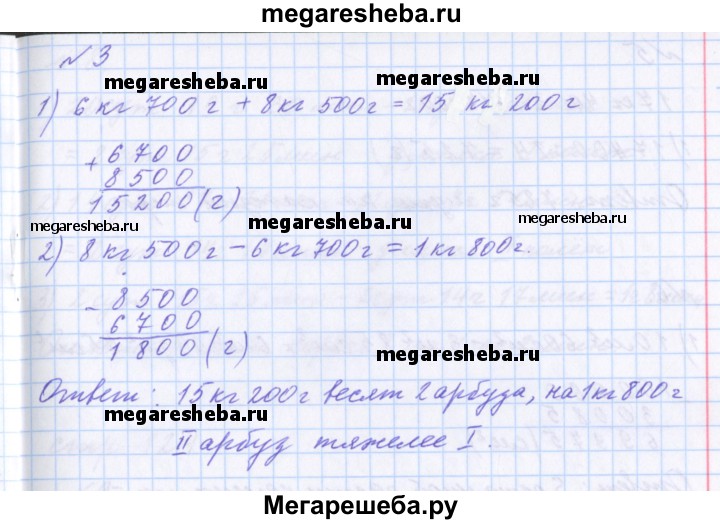 megaresheba.ru
№3
megaresheba.ru megaresheba.ru
1) 6 кг 700 г + 8 кг 500 г = 15 кг 200 г
+ 6700
8500
15200 (г)
megaresheba.ru megaresheba.ru megaresheba.ru
2) 8 кг 500 г - 6 кг 700 г = 1 кг 800 г.
- 8500
6700
1800 (г)
megaresheba.ru
Ответ: 15 кг 200 г весят 2 арбуза, на 1 кг 800 г
megaresheba.ru
II арбуз тяжелее I.
Мегарешеба.ру